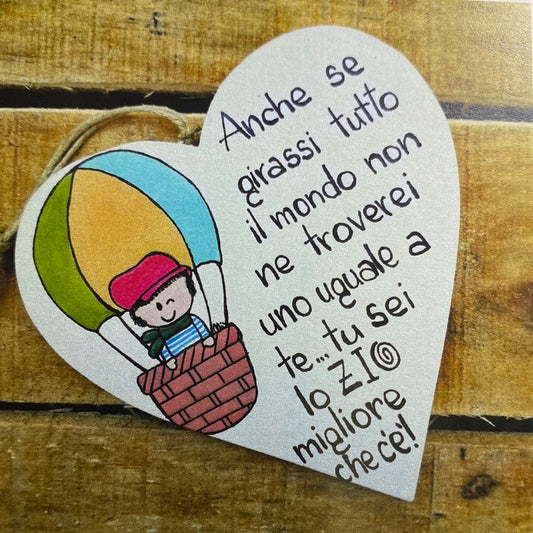 Anche se
girassi tutto
il mondo non
ne troverei
uno uguale a
te... tu sei
lo ZIO
migliore
che c'è!